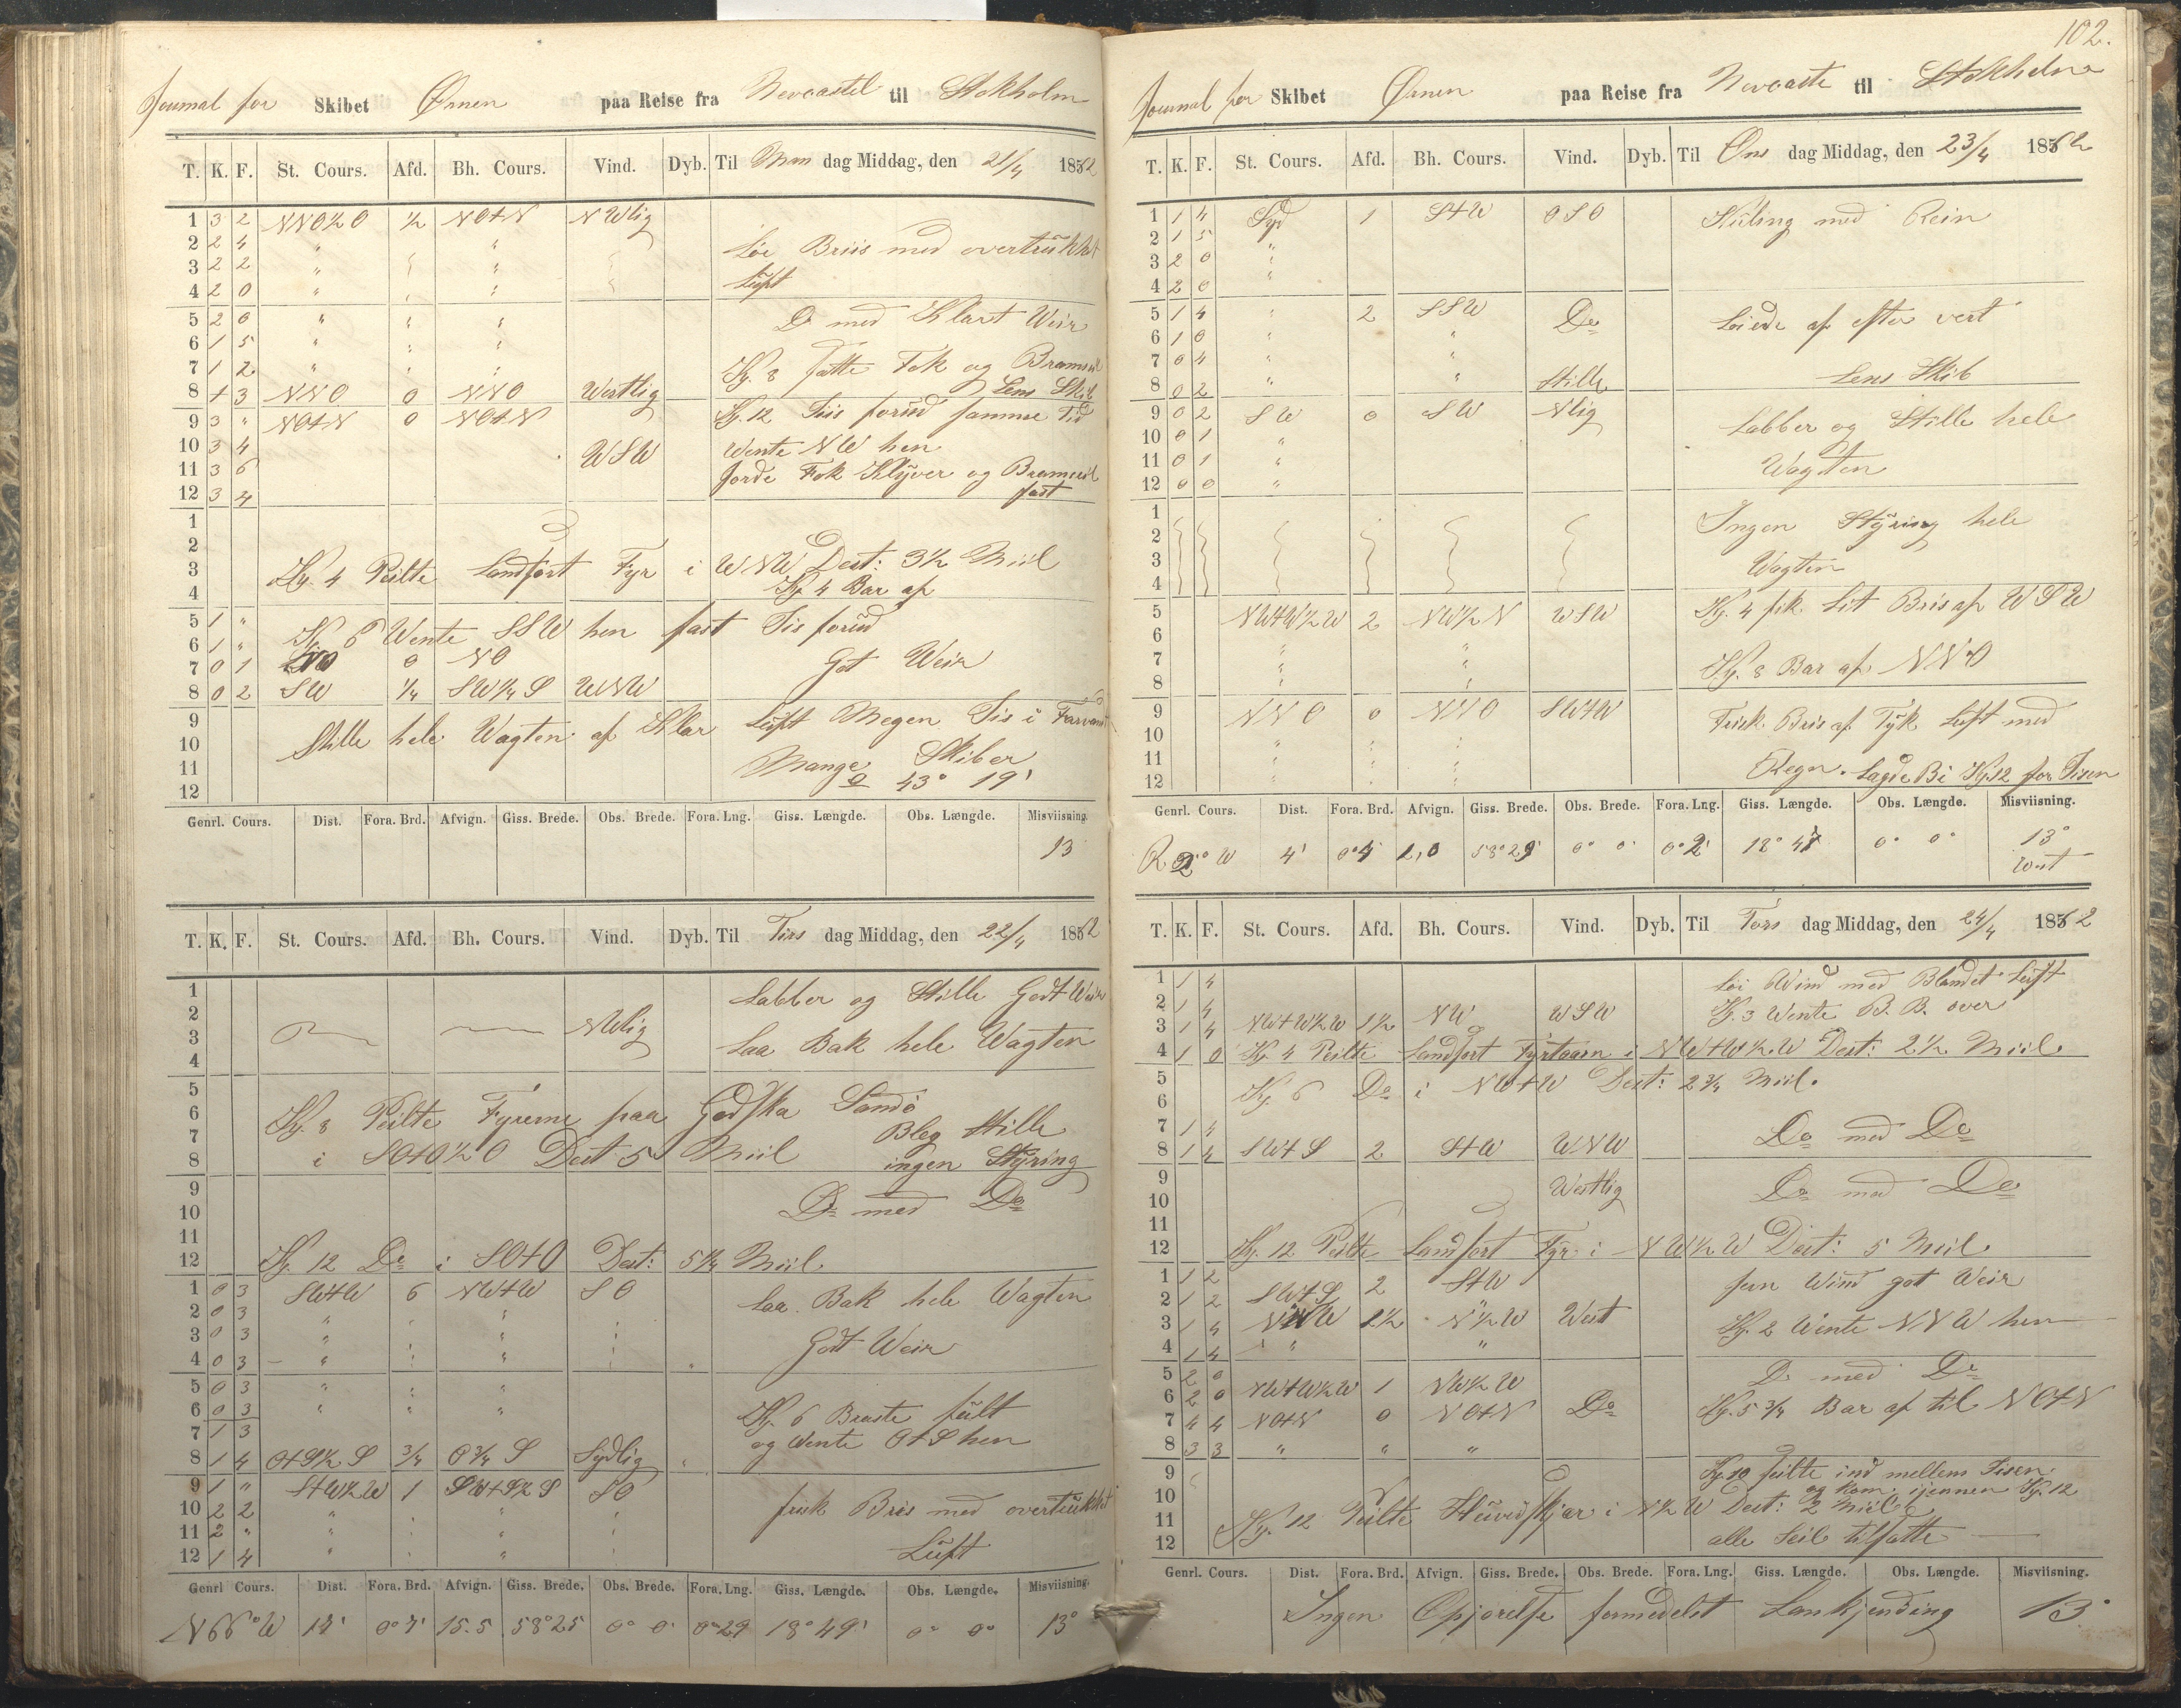 Journal for Skibet Ørnen paa Reise fra Newcastel til Stokholm
T. K. F. St. Cours. Afd. Bh. Cours. Vind. Dyb. Til Man dag Middag, den 21/4 1862
1 3 2 NNO½O ½ NO+N NWlig
2 2 4 " " Løi Briis med overtrükket
3 2 2 " "
4 2 0 " " Lüft
5 2 0 " " Do med Klart Weir
6 1 5 " "
7 1 2 " " Kg. 8 satte Fok og Bramseil
8 1 3 NNO 0 NNO Westlig Lens Skib
9 3 " NO+N 0 NO+N Kg. 12 Iiis forüd samme Tid
10 3 4 WSW Wente NW hen
11 3 6 Jorde Fok Klyver og Bramseil
12 3 4 fast
1
2
3 Kg. 4 Peilte Landsort Fyr i WNW Dest: 3½ Miil
4 Kg 4 Bar af
5 1 " Kg 6 Wente SSW hen fast Iis forüd
6 1 "
7 0 1 NO 0 NO Got Weir
8 0 2 SW ¼ SW¼S WNW
9 Stille hele Wagten af Klar Lüft Megen Iis i Farvand
10
11 Mange Skiber
12 43° 19'
Genrl. Cours. Dist. Fora. Brd. Afvign. Giss. Brede. Obs. Brede. Fora. Lng. Giss. Længde. Obs. Længde. Misviisning.
13
T. K. F. St. Cours. Afd. Bh. Cours. Vind. Dyb. Til Tirs dag Middag, den 22/4 1862
1 Labber og Stille Godt Weir
2 NWlig
3 Laa Bak hele Wagten
4
5
6 Kg. 8 Peilte Fyrerne paa Godska Sandö
7 Bleg Stille
8 i SO+O½O Dest 5 Miil ingen Styring
9 Do med Do
10
11
12 Kg. 12 Do i SO+O Dest: 5¼ Miil
1 0 3 SW+W 6 NW+W SO Laa Bak hele Wagten
2 0 3 " "
3 0 3 " " Godt Weir
4 0 3 " "
5 0 3 " "
6 0 3 " " " Kg. 6 Braste fült
7 1 3 og Wente O+S hen
8 1 4 O+S½S ¾ O¾S Sydlig
9 1 " S+W½W 1 SW+S½S SO
10 2 2 " " frisk Bris med overtrükket
11 2 " " "
12 1 4 " " Lüft
Genrl Cours. Dist. Fora. Brd. Afvign. Giss. Brede. Obs. Brede. Fora. Lng. Giss. Længde. Obs. Længde. Misviisning.
N66°W 17' 0°7' 15.5 58°25 0° 0' 0°29 18°49' 0° 0° 13°
102.
Journal for Skibet Ørnen paa Reise fra Newcaste til Stokholm
T. K. F. St. Cours. Afd. Bh. Cours. Vind. Dyb. Til Ons dag Middag, den 23/4 1862
1 1 4 Syd 1 S+W OSO Küling med Rein
2 1 5 "
3 2 0 "
4 2 0 "
5 1 4 " 2 SSW Do Løiede af efter vert
6 1 0 " "
7 0 4 " "
8 0 2 " " Stille Lens Skib
9 0 2 SW 0 SW Nlig Labber og Stille hele
10 0 1 "
11 0 1 " Wagten
12 0 0 "
1 Ingen Styring hele
2
3 Wagten
4
5 NW+W½W 2 NW½N WSW Kg. 4 fik Lit Bris af WSW
6 " "
7 " " Kg. 8 Bar af NNO
8 " "
9 NNO 0 NNO SW+W Frisk Bris af Tyk Luft med
10 " "
11 " " Regn. Lagde Bi Kg.12 for Iisen
12 " "
Genrl. Cours. Dist. Fora. Brd. Afvign. Giss. Brede. Obs. Brede. Fora. Lng. Giss. Længde. Obs. Længde. Misviisning.
W 4' 0°4 58°29' 0° 0' 0°2' 18°47 0° 0° 13° West
T. K. F. St. Cours. Afd. Bh. Cours. Vind. Dyb. Til Tors dag Middag, den 24/4 1862
1 1 4 Løi Wind med Blandet Luft
2 1 4 Kg. 3 Wente B.B. over
3 1 4 NW+W½W 1½ NW WSW
4 1 0 Kg 4 Peilte Landsort Fyrtaarn i NW+W½W Dest: 2½ Miil.
5 Kg. 6 Do i NW+W Dest: 2¾ Miil.
6
7 1 4 Do med Do
8 1 4 SW+S 2 S+W WNW
9 Westlig Do med Do
10
11
12 Kg. 12 Peilte Landsort Fyr i NW½W Dest: 5 Miil.
1 1 2 SW+S 2 S+W fan Wind got Weir
2 1 2
3 1 4 NNW 1½ N½W West Kg. 2 Wente NNW hen
4 1 4 " "
5 2 0 Do med Do
6 2 0 NW+W½W 1 NW½W
7 4 4 NO+N 0 NO+N Do Kg. 5¾ Bar af til NO+N
8 3 3 " " "
9 Kg. 10 seilte ind mellem Iisen
10 og kom igennen Kg. 12
11 Kg. 12 Peilte Hüvedskjær i N½W Dest: 2 Miil
12 alle Seil tilsatte
Genrl. Cours. Dist. Fora. Brd. Afvign. Giss. Brede. Obs. Brede. Fora. Lng. Giss. Længde. Obs. Længde. Misviisning.
Ingen Opjørelse formedelst Lankjending 13°